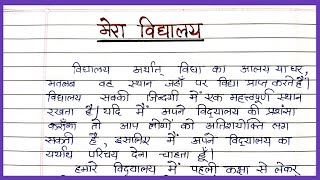 मेरा विद्यालय
विद्यालय अर्थात् विद्या का आलय या घर,
मतलब वह स्थान जहाँ पर विद्या प्राप्त करते हैं।
विद्यालय सबकी ज़िन्दगी में एक महत्त्वपूर्ण स्थान
रखता है। यदि मैं अपने विद्यालय की प्रशंसा
करूँगा तो आप लोगों को अतिशयोक्ति लग
सकती है, इसलिए मैं अपने विद्यालय का
यथार्थ परिचय देना चाहता हूँ।
हमारे विद्यालय में पहली कक्षा से लेकर